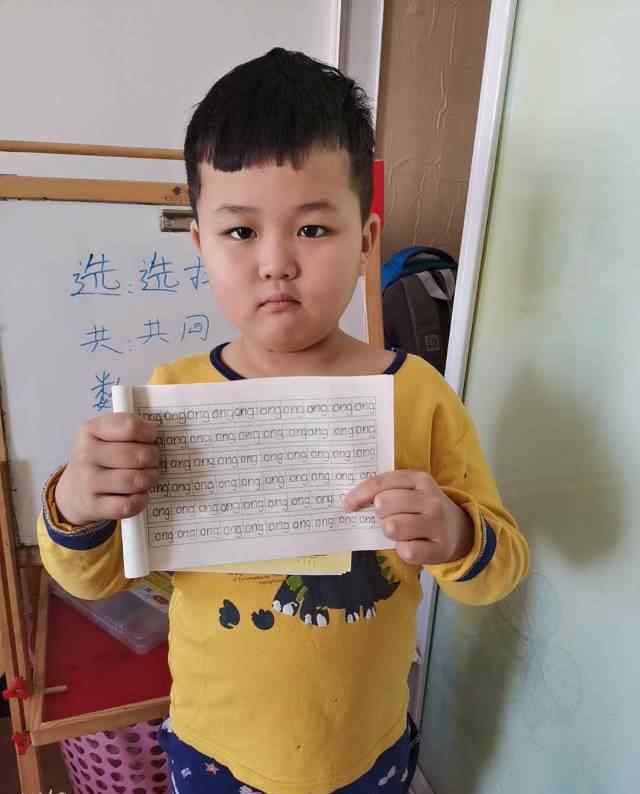 选:选
共:共同
数
ong ong ong ong ong ong ong ong ong ong
ong ong ong ong ong ong ong ong ong ong
ong ong ong ong ong ong ong ong ong ong
ong ong ong ong ong ong ong ong ong ong
ong ong ong ong ong ong ong ong
ong ong ong ong ong ong ong ong ong ong